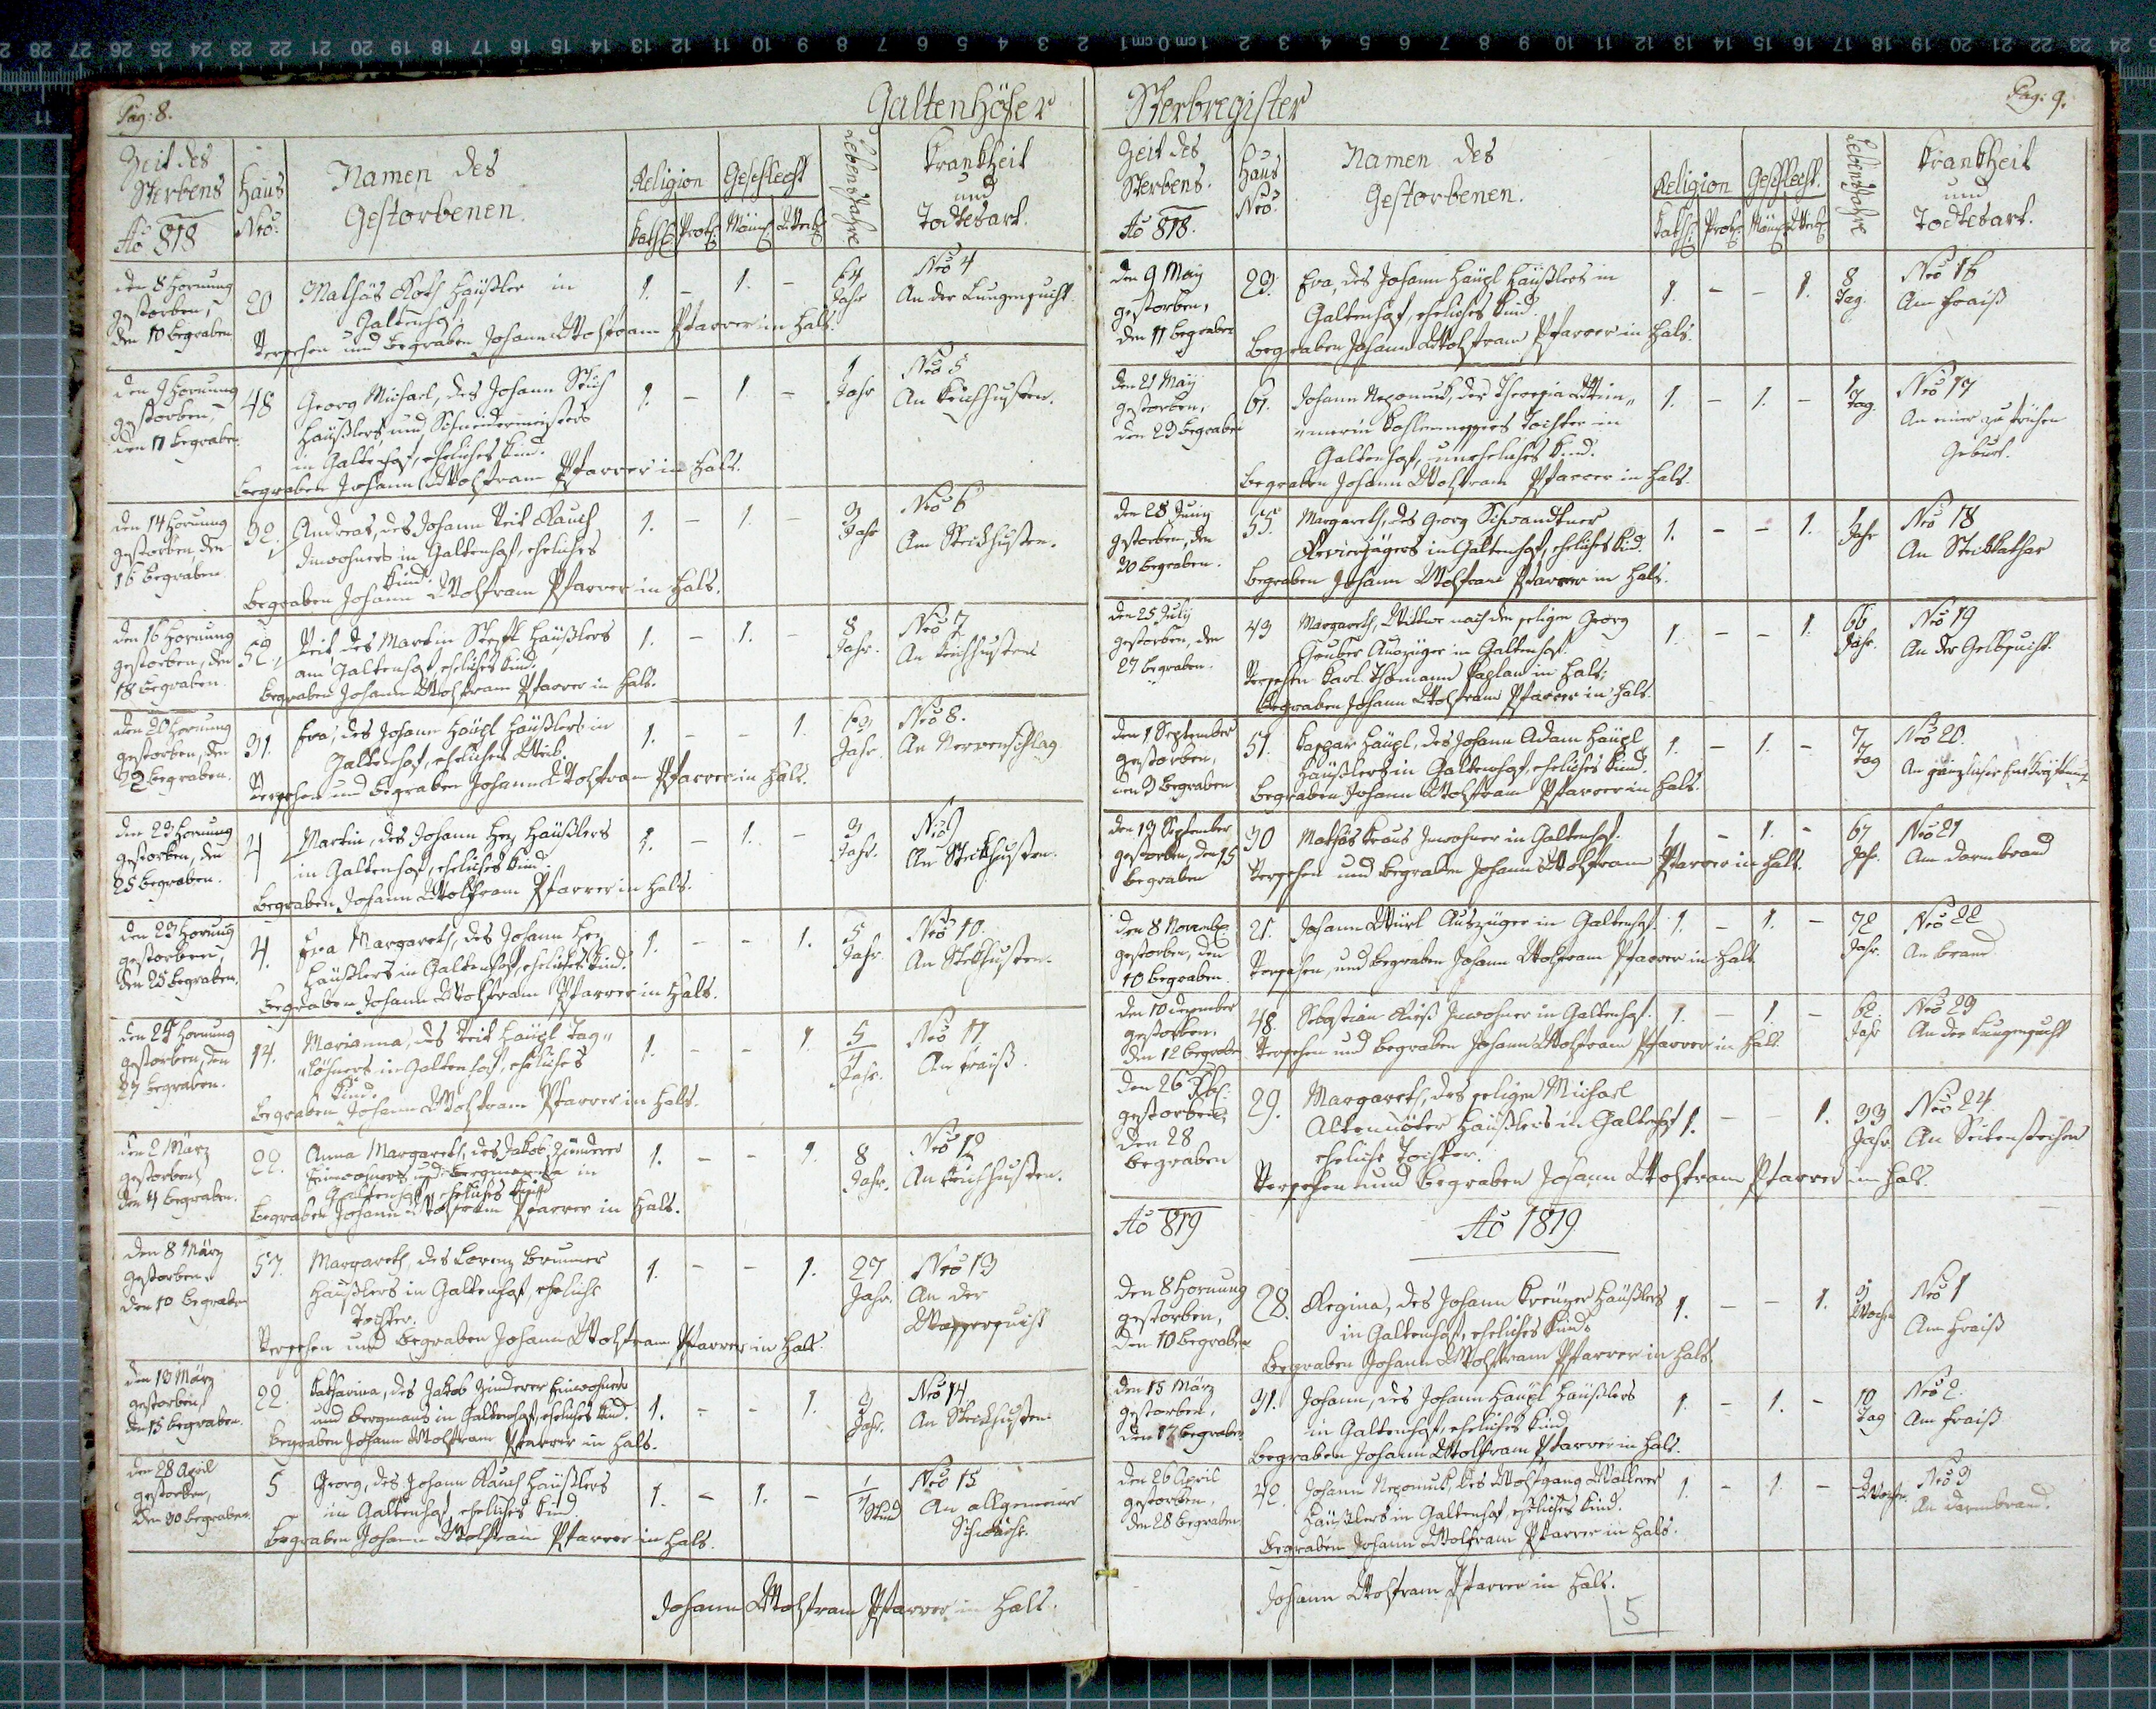 Pag: 8.
Galtenhöfer
Zeit des Sterbens Aõ 818
Haus Nrõ.
Namen des Gestorbenen.
Religion
Kathl: Protl:
Geschlecht
Männl: Weibl:
Lebensjahre
Krankheit und Todtesart.
den 8 Hornung
gestorben,
den 10 begraben
20
Mathäs Roth Häußler in
Galtenhof.
Versehen und begraben Johann Wolfram Pfarrer in Hals.
1. - 1. -
64 Jahr
Nrõ 4
An der Lungensucht.
den 9 Hornung
gestorben,
den 11 begraben
48
Georg Michael, des Johann
Häußlers und Schneidermeisters
in Galtenhof, eheliches Kind.
begraben Johann Wolfram Pfarrer in Hals.
1. - 1. -
1 Jahr
Nrõ 5
An Keichhusten.
den 14 Hornung
gestorben, den
16 begraben.
32.
Andreas, des Johann Veit Rauch
Inwohners in Galtenhof, eheliches
Kind.
begraben Johann Wolfram Pfarrer in Hals.
1. - 1. -
3 Jahr
Nrõ 6
Am Steckhusten.
den 16 Hornung
gestorben, den
18 begraben.
52,
Veit, des Martin Häußlers
am Galtenhof, eheliches Kind.
begraben Johann Wolfram Pfarrer in Hals.
1. - 1. -
8 Jahr.
Nrõ 7
An Keichhusten
den 20 Hornung
gestorben, den
22 begraben.
31.
Eva, des Johann Häupl Häußlers in
Galtenhof, eheliches Weib.
Versehen und begraben Johann Wolfram Pfarrer in Hals.
1. - - 1.
62 Jahr
Nrõ 8.
An Nervenschlag.
den 23 Hornung
gestorben, den
25 begraben.
4
Martin, des Johann Hey Häußlers
in Galtenhof, eheliches Kind.
begraben Johann Wolfram Pfarrer in Hals.
1. - 1. -
3 Jahr.
Nrõ 9
An Steckhusten.
den 23 Hornung
gestorben,
den 25 begraben.
4.
Eva Margareth, des Johann Hey
Häußlers in Galtenhof, eheliches Kind.
begraben Johann Wolfram Pfarrer in Hals.
1. - - 1.
5 Jahr.
Nrõ 10.
An Steckhusten.
den 25 Hornung
gestorben, den
27 begraben.
14.
Marianna, des Veit Häupl Tag„
„löhners in Galtenhof, eheliches
Kind.
begraben Johann Wolfram Pfarrer in Hals.
1. - - 1.
5/4 Jahr.
Nrõ 11
An Fraiß.
den 2 März
gestorben,
den 4 begraben.
22.
Anna Margareth, des Jakob Zinderer
Einwohners und Bergmanns in
Galtenhof eheliches Kind
begraben Johann Wolfram Pfarrer in Hals.
1. - - 1.
8 Jahr.
Nrõ 12
An Keichhusten.
den 8 März
gestorben,
den 10 begraben
57.
Margareth, des Lorenz Brunner
Häußlers in Galtenhof, eheliche
Tochter.
Versehen und begraben Johann Wolfram Pfarrer in Hals.
1. - - 1.
27 Jahr.
Nrõ 13
An der
Wassersucht
den 13 März
gestorben,
den 15 begraben.
22.
Katharina, des Jakob Zinderer Einwohners
und Bergmans in Galtenhof, eheliches Kind.
begraben Johann Wolfram Pfarrer in Hals.
1. - - 1.
3 Jahr.
Nrõ 14
An Steckhusten
den 28 April
gestorben,
den 30 begraben.
5
Georg, des Johann Rauch Häußlers
in Galtenhof, eheliches Kind.
begraben Johann Wolfram Pfarrer in Hals.
1. - 1. -
1/4 Stund
Nrõ 15
An allgemeiner
Schwäche.
Johann Wolfram Pfarrer in Hals.
Sterbregister
Pag: 9.
Zeit des Sterbens. Aõ 818.
Haus Nrõ.
Namen des Gestorbenen.
Religion
Kathl: Protl:
Geschlecht.
Männl: Weibl:
Lebensjahre
Krankheit und Todtesart.
den 9 May
gestorben,
den 11 begraben
23.
Eva, des Johann Häupl Häußlers in
Galtenhof, eheliches Kind.
begraben Johann Wolfram Pfarrer in Hals.
1. - - 1.
8 Tag.
Nrõ 16
Am Fraiß
den 21 May
gestorben,
den 23 begraben
61.
Johann Nepomuk, der Theresia
Tochter in
Galtenhof, uneheliches Kind.
begraben Johann Wolfram Pfarrer in Hals.
1. - 1. -
1 Tag.
Nrõ 17
An einer zu frühen
Geburt.
den 28 Juny
gestorben, den
30 begraben.
55.
Margareth, des Georg Schwandtner
Revierjägers in Galtenhof, eheliches Kind.
begraben Johann Wolfram Pfarrer in Hals.
1. - - 1.
1 Jahr
Nrõ 18
An Steckkathar
den 25 July
gestorben, den
27 begraben.
43
Margareth, Wittwe nach dem seligen Georg
Gruber Auszüger in Galtenhof.
Versehen Karl Thomann Kaplan in Hals;
begraben Johann Wolfram Pfarrer in Hals.
1. - - 1.
66 Jahr.
Nrõ 19
An der Gelbsucht.
den 1 September
gestorben,
den 3 begraben
51.
Kaspar Häupl, des Johann Adam Häupl
Häußlers in Galtenhof, eheliches Kind.
begraben Johann Wolfram Pfarrer in Hals.
1. - 1. -
7 Tag
Nrõ 20.
An gänzlicher Entkräftung
den 13 September
gestorben, den 15
begraben
30
Mathäs Kraus Inwohner in Galtenhof.
Versehen und begraben Johann Wolfram Pfarrer in Hals.
1. - 1. -
67 Jahr.
Nrõ 21
Am Darmbrand
den 8 Novembr.
gestorben, den
10 begraben
21.
Johann Würl Auszüger in Galtenhof.
Versehen, und begraben Johann Wolfram Pfarrer in Hals
1. - 1. -
72 Jahr.
Nrõ 22
An Brand
den 10 December
gestorben,
den 12 begraben
48.
Sebastian Rieß Inwohner in Galtenhof.
Versehen und begraben Johann Wolfram Pfarrer in Hals
1. - 1. -
62. Jahr
Nrõ 23
An der Lungensucht
den 26
gestorben,
den 28
begraben
29.
Margareth, des seligen Michael
Häußlers in Galtenhof
eheliche Tochter.
Versehen und begraben Johann Wolfram Pfarrer in Hals.
1. - - 1.
33 Jahr.
Nrõ 24.
An Seitenstechen
Aõ 819
Aõ 1819
den 8 Hornung
gestorben,
den 10 begraben
28.
Regina, des Johann Kreuzer Häußlers
in Galtenhof, eheliches Kind.
begraben Johann Wolfram Pfarrer in Hals.
1. - - 1.
Wochen
Nrõ 1
Am Fraiß
den 15 März
gestorben,
den 17 begraben
31.
Johann, des Johann Häupl Häußlers
in Galtenhof, eheliches Kind
begraben Johann Wolfram Pfarrer in Hals.
1. - 1. -
10 Tag
Nrõ 2.
Am Fraiß
den 26 April
gestorben,
den 28 begraben
42.
Johann Nepomuk, des Wolfgang Wallerer
Häußlers in Galtenhof, eheliches Kind.
begraben Johann Wolfram Pfarrer in Hals.
1. - 1. -
Wochen
Nrõ 3
An Darmbrand.
Johann Wolfram Pfarrer in Hals.
5